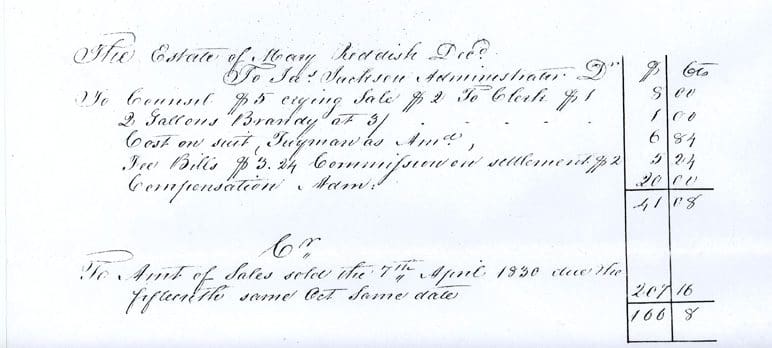 The Estate of Mary Reddish Decd
To Jas Jackson Administrator Dr $ Cts
To Counsel $5 crying Sale $2 To Clerk $1 8 00
2 Gallons Brandy at 3/ 1 00
Cost on suit, as Amd, 6 84
Fee Bills $3.24 Commission on settlement $2 5 24
Compensation Adm: 20 00
41 08
Cr
To Amt of Sales sold the 7th April 1830 due the
fifteenth same Oct Same date 207 16
166 8